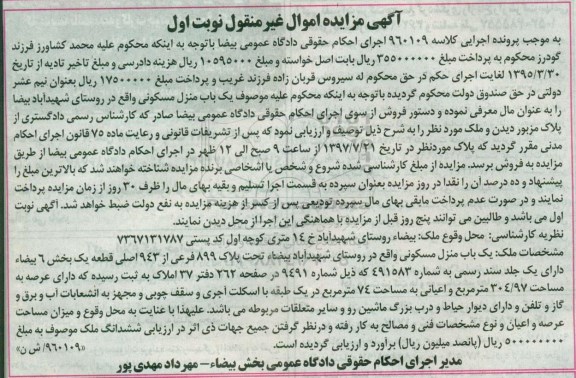 آگهی مزایده اموال غیر منقول نوبت اول
به موجب پرونده اجرایی کلاسه ۹۶۰۱۰۹ اجرای احکام حقوقی دادگاه عمومی بیضا باتوجه به اینکه محکوم علیه محمد کشاورز فرزند
گودرز محکوم به پرداخت مبلغ ۳۵۵۰۰۰۰۰۰ ریال بابت اصل خواسته و مبلغ ۱۰۵۹۵۰۰۰ ریال هزینه دادرسی و مبلغ تاخیر تادیه از تاریخ
۱۳۹۵/۳/۳۰ لغایت اجرای حکم در حق محکوم له سیروس قربان زاده فرزند غریب و پرداخت مبلغ ۱۷۵۰۰۰۰۰ ریال بعنوان نیم عشر
دولتی در حق صندوق دولت محکوم گردیده باتوجه به اینکه محکوم علیه موصوف یک باب منزل مسکونی واقع در روستای شهیدآباد بیضا
را به عنوان مال معرفی نموده و دستور فروش از سوی اجرای احکام حقوقی دادگاه عمومی بیضا صادر که کارشناس رسمی دادگستری از
پلاک مزبور دیدن و ملک مورد نظر را به شرح ذیل توصیف و ارزیابی نمود که پس از تشریفات قانونی و رعایت ماده ۷۵ قانون اجرای احکام
مدنی مقرر گردید که پلاک موردنظر در تاریخ ۱۳۹۷/۷/۲۱ از ساعت ۹ صبح الی ۱۲ ظهر در اجرای احکام دادگاه عمومی بیضا از طریق
مزایده به فروش برسد. مزایده از مبلغ کارشناسی شده شروع و شخص یا اشخاصی برنده مزایده شناخته خواهند شد که بالاترین مبلغ را
پیشنهاد و ده درصد آن را نقدا در روز مزایده بعنوان سپرده به قسمت اجرا تسلیم و بقیه بهای مال را ظرف ۳۰ روز از زمان مزایده پرداخت
نمایند و در صورت عدم پرداخت مابقی بهای مال سپرده تودیعی پس از کسر از هزینه مزایده به نفع دولت ضبط خواهد شد. آگهی نوبت
اول می باشد و طالبین می توانند پنج روز قبل از مزایده با هماهنگی این اجرا از محل دیدن نمایند.
نظریه کارشناسی: محل وقوع ملک: بیضاء روستای شهیدآباد خ ۱۴ متری کوچه اول کد پستی ۷۳۶۷۱۳۱۷۸۷
مشخصات ملک: یک باب منزل مسکونی واقع در روستای شهیدآباد بیضاء تحت پلاک ۸۹۹ فرعی از ۹۴۳ اصلی قطعه یک بخش ۶ بیضاء
دارای یک جلد سند رسمی به شماره ۴۹۱۵۸۳ که ذیل شماره ۹۴۹۱ در صفحه ۲۶۲ دفتر ۳۷ املاک به ثبت رسیده که دارای عرصه به
مساحت ۳۰۴/۹۷ مترمربع و اعیانی به مساحت ۷۴ مترمربع در یک طبقه با اسکلت آجری و سقف چوبی و مجهز به انشعابات آب و برق و
گاز و تلفن و دارای دیوار حیاط و درب بزرگ ماشین رو و سایر متعلقات مربوطه می باشد. علیهذا با عنایت به محل وقوع و میزان مساحت
عرصه و اعیان و نوع مشخصات فنی و مصالح به کار رفته و درنظر گرفتن جمیع جهات ذی اثر در ارزیابی ششدانگ ملک موصوف به مبلغ
۵۰۰۰۰۰۰۰۰ ریال (پانصد میلیون ریال) برآورد و ارزیابی گردیده است. «۹۶۰۱۰۹/ ش ن»
مدیر اجرای احکام حقوقی دادگاه عمومی بخش بیضاء – مهرداد مهدی پور